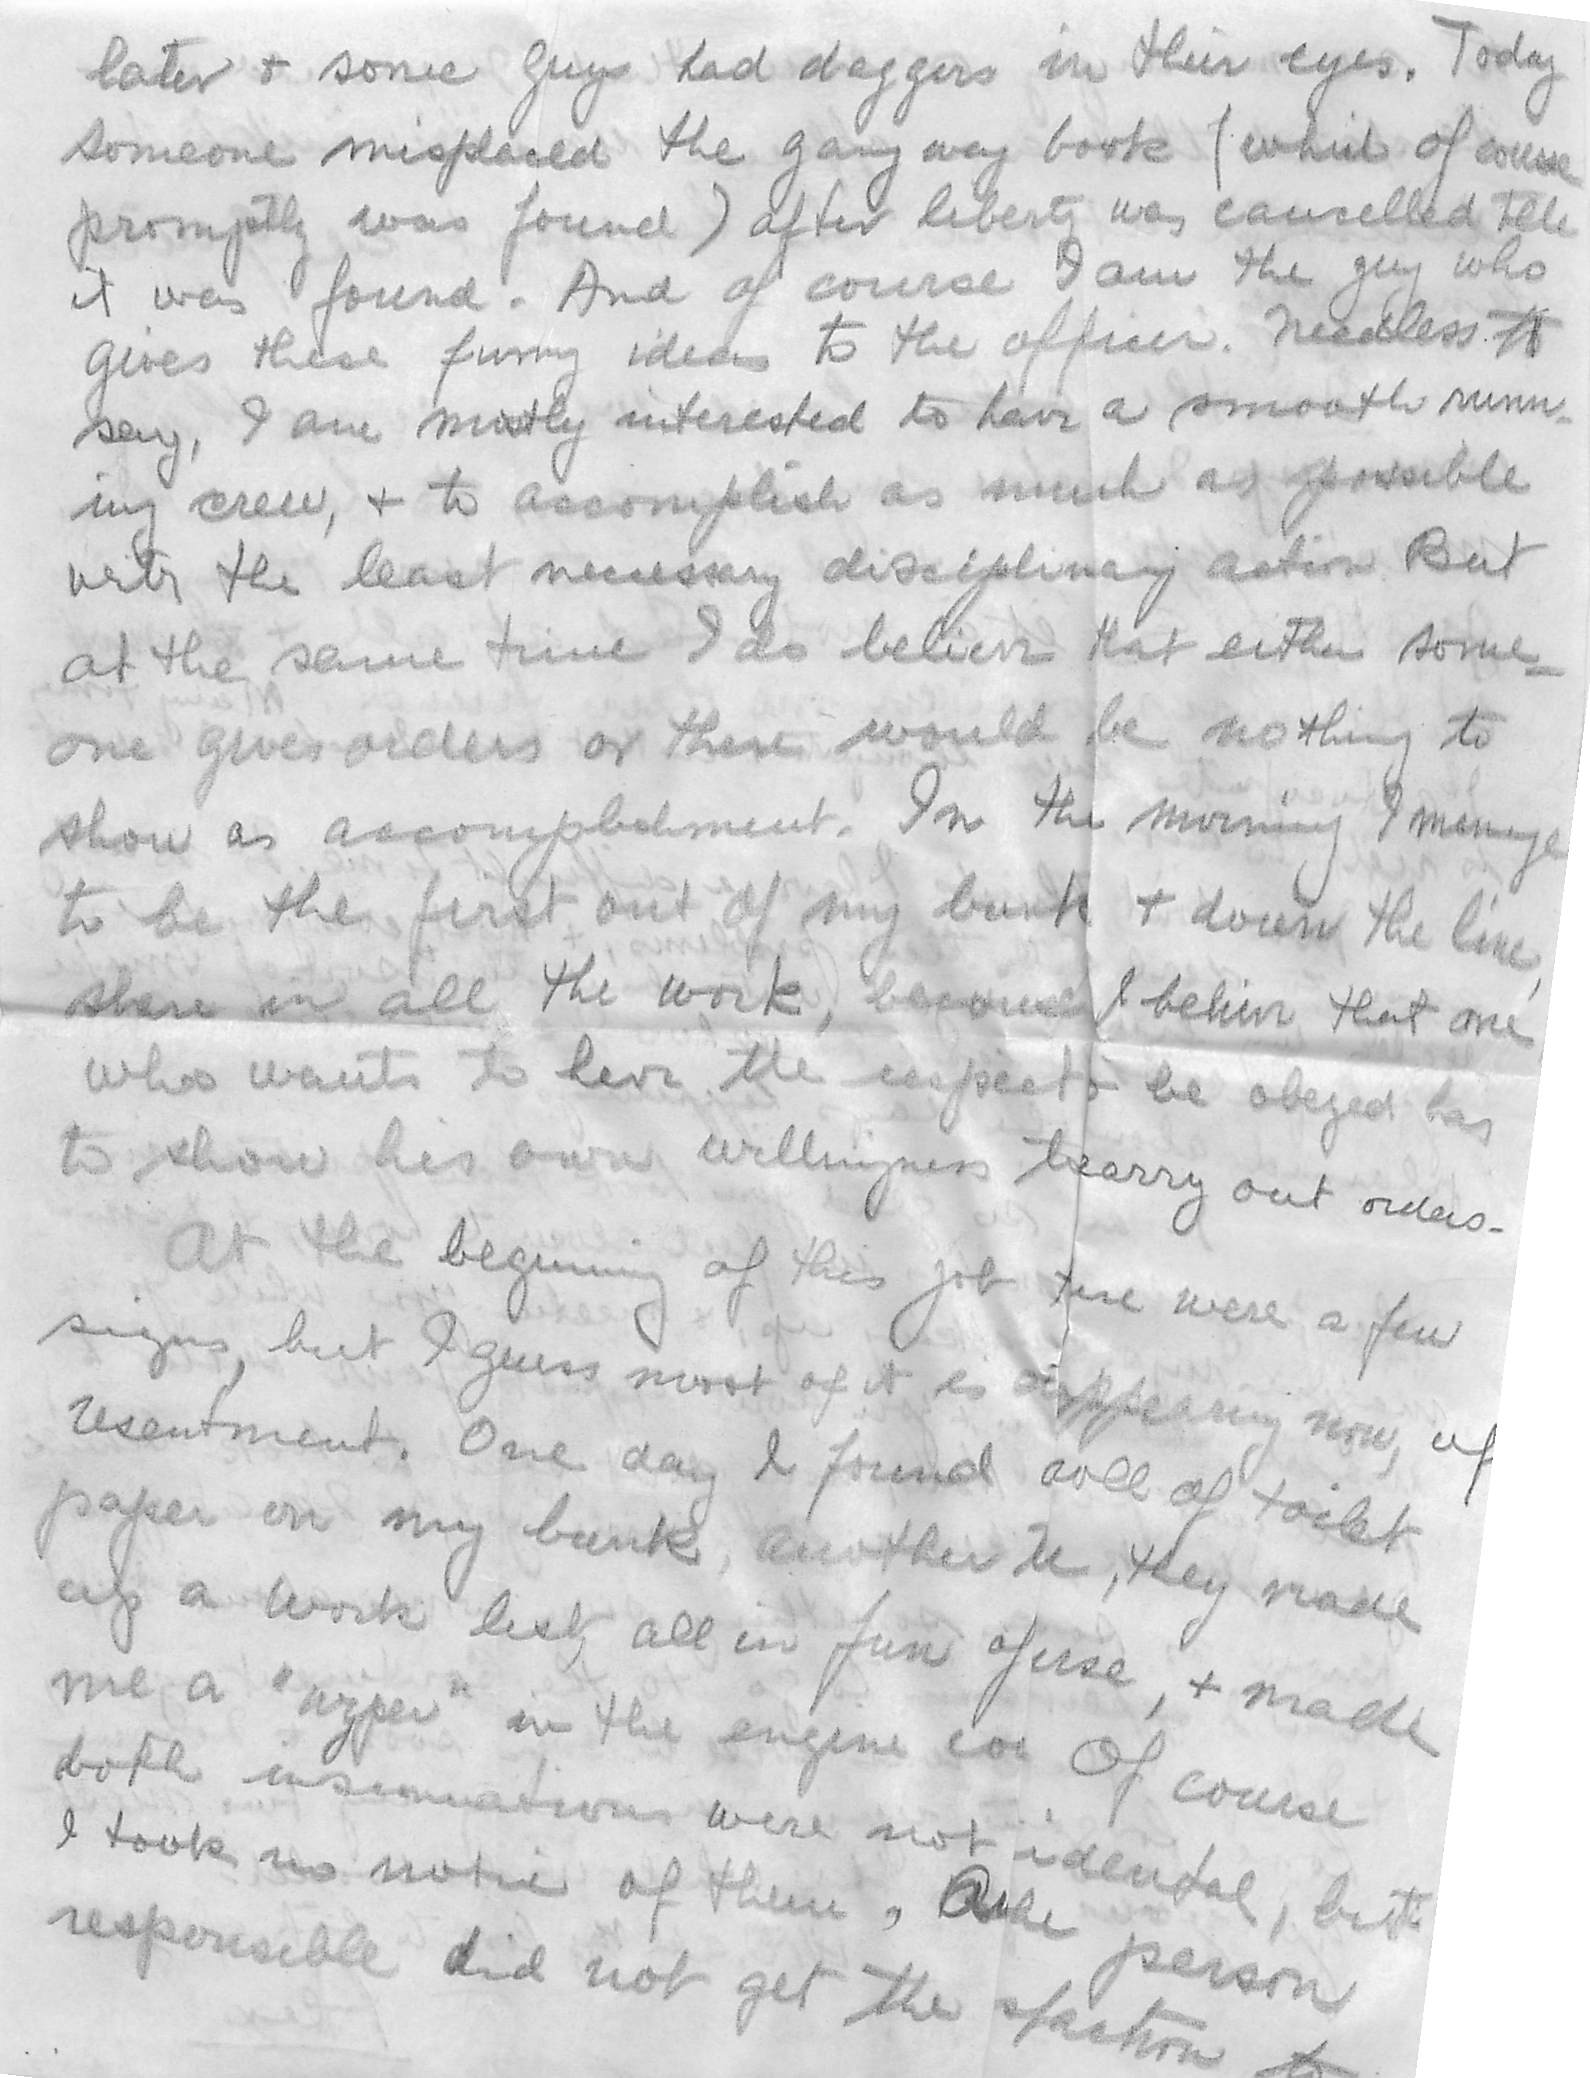 later + some guys had daggers in their eyes. Today
someone misplaced the gangway book (which of course
promptly was found) after liberty was cancelled till
it was found. And of course I am the guy who
gives these funny ideas to the officer. Needless to
say, I am mostly interested to have a smooth runn-
ing crew, + to accomplish as much as possible
with the least necessary disciplinary action But
at the same time I do believe that either some-
one gives orders or there would be nothing to
show as accomplishment. In the morning I manage
to be the first out of my bunk + down the line,
share in all the work, because I believe that one
who wants to have the respect to be obeyed has
to show his own willingness to carry out orders-
At the beginning of this job there were a few
signs, but I guess most of it is disappearing now, of
resentment. One day I found roll of toilet
paper on my bunk, another , they made
up a work list, all in fun , + made
me a "wyper" in the engine Of course
both insinuations were not idental, but
I took no notice of them, person
responsible did not get the sfaction to